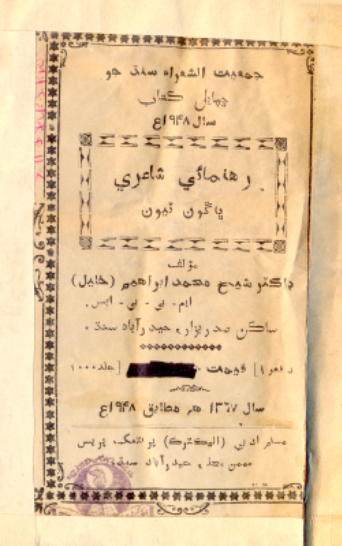 جمعيت الشعراء سنڌ جو
ڇپايل ڪتاب
سال ۱۹۴۸ع
رهنمائي شاعري
ڀاڱون ٽيون
مؤلف
ڊاڪٽر شيخ محمد ابراهيم (خليل)
ايم . بي . بي . ايس .
ساڪن صدر بزار، حيدرآباد سنڌ .
دفعو ۱] قيمت [جلد ۱۰۰۰
سال ۱۳٦۷ هه مطابق ۱۹۴۸ع
مسلم ادبي (اليڪٽرڪ) پرنٽنگ پريس
ميمڻ محله، حيدرآباد سنڌ .